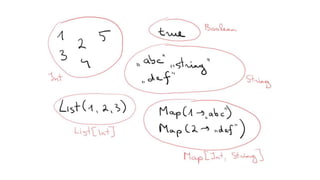 1 2 5
3 4
Int
true
Boolean
„abc" „string"
„def"
String
List(1,2,3)
List[Int]
Map(1→„abc")
Map(2→„def")
Map[Int, String]